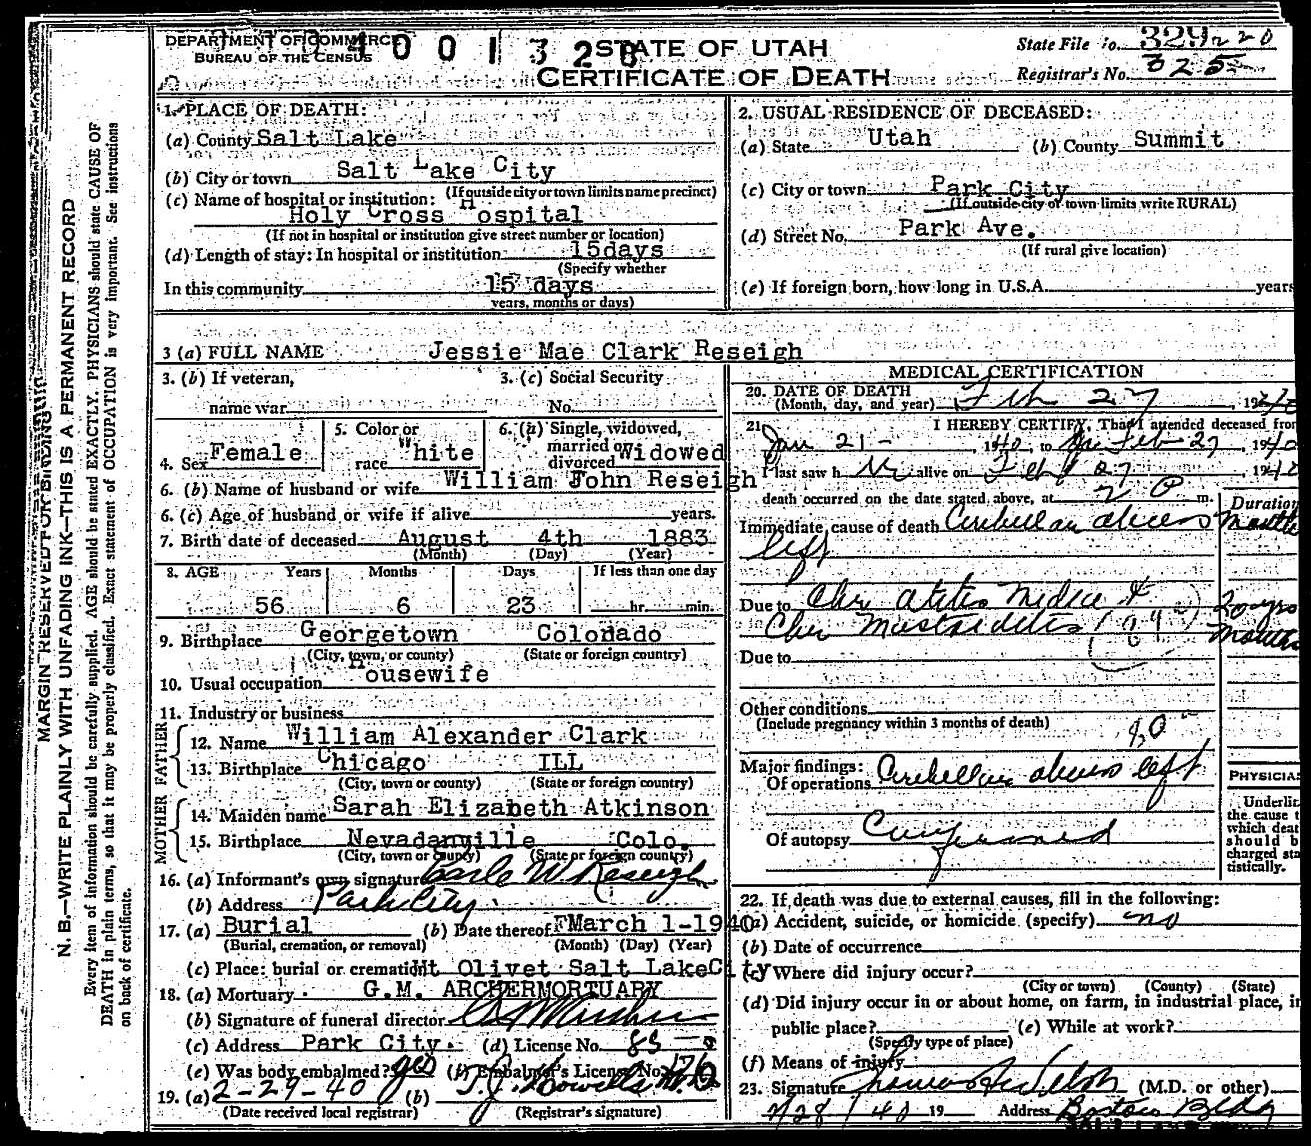 DEPARTMENT OF COMMERCE
BUREAU OF THE CENSUS
STATE OF UTAH
CERTIFICATE OF DEATH
State File No. 329
Registrar's No. 325
MARGIN RESERVED FOR BINDING
N. B.—WRITE PLAINLY WITH UNFADING INK—THIS IS A PERMANENT RECORD
Every item of information should be carefully supplied. AGE should be stated EXACTLY. PHYSICIANS should state CAUSE OF
DEATH in plain terms, so that it may be properly classified. Exact statement of OCCUPATION is very important. See instructions
on back of certificate.
1. PLACE OF DEATH:
(a) County Salt Lake
(b) City or town Salt Lake City
(If outside city or town limits name precinct)
(c) Name of hospital or institution:
Holy Cross Hospital
(If not in hospital or institution give street number or location)
(d) Length of stay: In hospital or institution 15days
(Specify whether
In this community 15 days
years, months or days)
2. USUAL RESIDENCE OF DECEASED:
(a) State Utah (b) County Summit
(c) City or town Park City
(If outside city or town limits write RURAL)
(d) Street No. Park Ave.
(If rural give location)
(e) If foreign born, how long in U.S.A. years
3 (a) FULL NAME Jessie Mae Clark Reseigh
3. (b) If veteran, name war
3. (c) Social Security No.
4. Sex Female
5. Color or race White
6. (a) Single, widowed, married or divorced Widowed
6. (b) Name of husband or wife William John Reseigh
6. (c) Age of husband or wife if alive years.
7. Birth date of deceased August 4th 1883
(Month) (Day) (Year)
8. AGE Years Months Days If less than one day
56 6 23 hr. min.
9. Birthplace Georgetown Colorado
(City, town, or county) (State or foreign country)
10. Usual occupation Housewife
11. Industry or business
FATHER
12. Name William Alexander Clark
13. Birthplace Chicago ILL
(City, town or county) (State or foreign country)
MOTHER
14. Maiden name Sarah Elizabeth Atkinson
15. Birthplace Nevadanville Colo.
(City, town or county) (State or foreign country)
16. (a) Informant's own signature Earle W Reseigh
(b) Address Park City.
17. (a) Burial (b) Date thereof March 1-1940
(Burial, cremation, or removal) (Month) (Day) (Year)
(c) Place: burial or cremation Mt Olivet Salt LakeCity
18. (a) Mortuary G.M. ARCHERMORTUARY
(b) Signature of funeral director
(c) Address Park City. (d) License No. 85
(e) Was body embalmed? yes (f) Embalmer's License No. 176
19. (a) 2-29-40 (b) T.J. Howells M.D.
(Date received local registrar) (Registrar's signature)
MEDICAL CERTIFICATION
20. DATE OF DEATH
(Month, day, and year) Feb 27, 1940
21. I HEREBY CERTIFY, That I attended deceased from
Jan 21 - , 1940, to Feb 27, 1940
I last saw h er alive on Feb 27, 1940
death occurred on the date stated above, at 2 P m.
Duration
Immediate cause of death Cerebellar abscess Months
left
Due to Chr otitis Media & 20 yrs
Chr Mastoiditis Months
Due to
Other conditions
(Include pregnancy within 3 months of death)
Major findings:
Of operations Cerebellar abscess left
Of autopsy Confirmed
PHYSICIA
Underli
the cause t
which deat
should b
charged sta
tistically.
22. If death was due to external causes, fill in the following:
(a) Accident, suicide, or homicide (specify) no
(b) Date of occurrence
(c) Where did injury occur?
(City or town) (County) (State)
(d) Did injury occur in or about home, on farm, in industrial place, in
public place? (e) While at work?
(Specify type of place)
(f) Means of injury
23. Signature (M.D. or other)
2/28/40 19 Address Boston Bldg